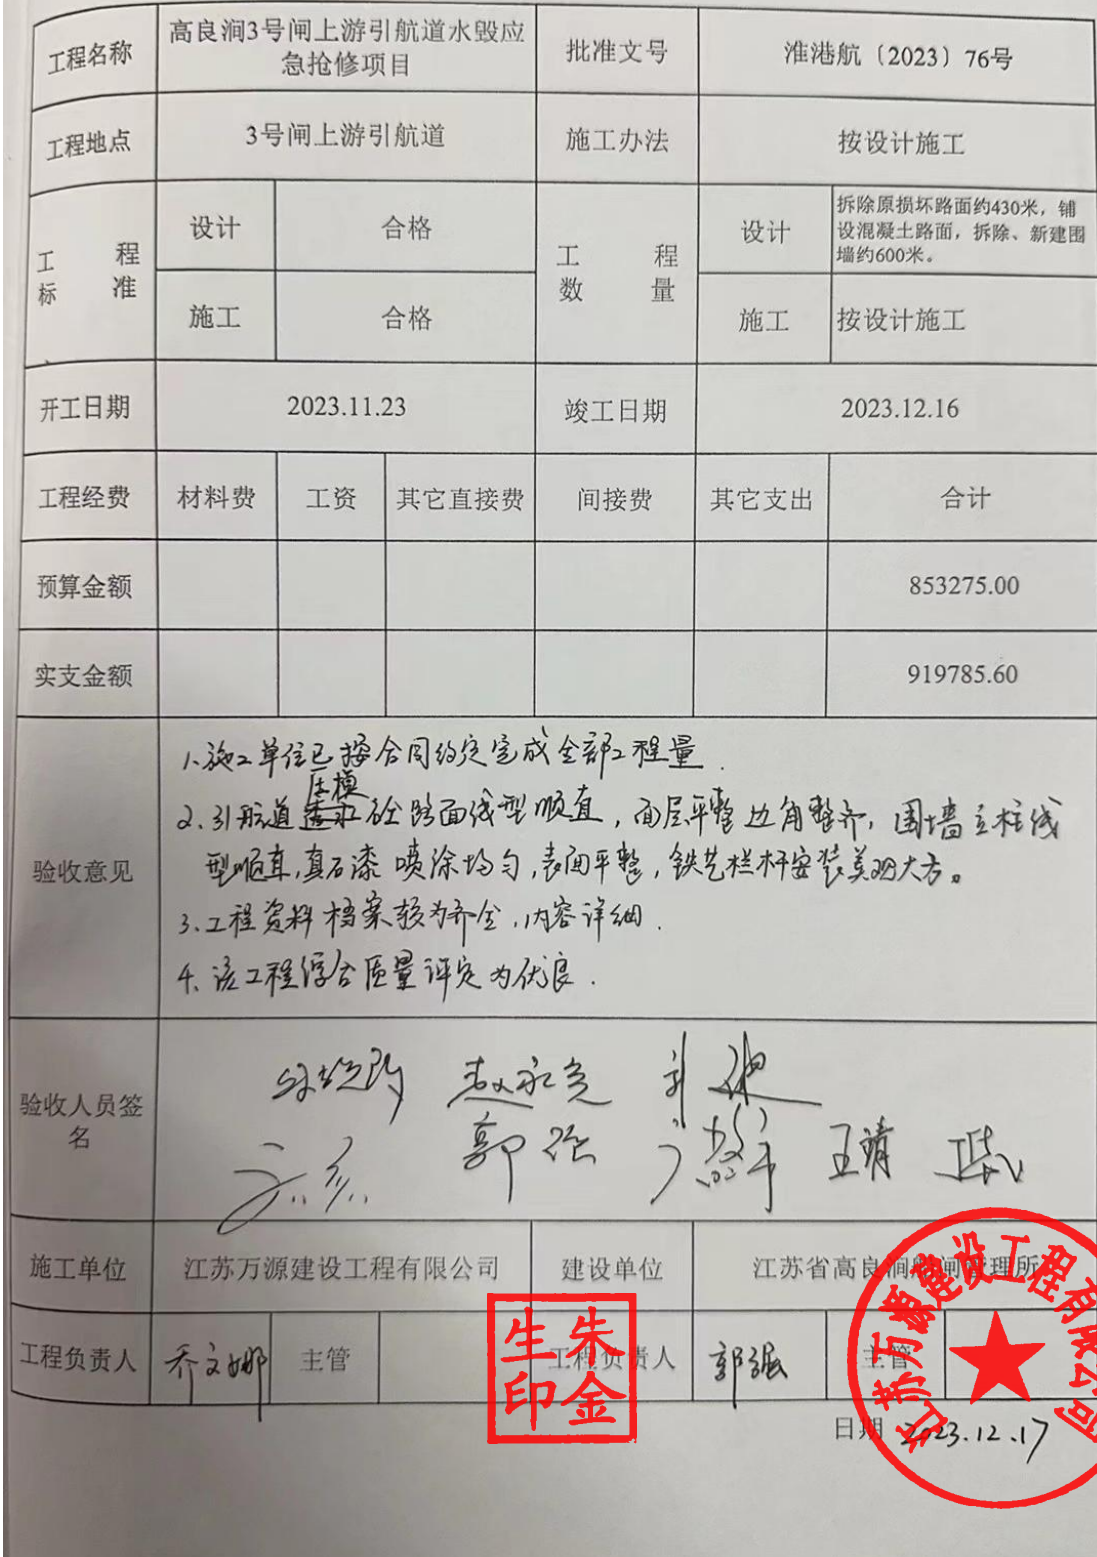 工程名称 高良涧3号闸上游引航道水毁应急抢修项目 批准文号 淮港航〔2023〕76号
工程地点 3号闸上游引航道 施工办法 按设计施工
工程标准 设计 合格 工程数量 设计 拆除原损坏路面约430米，铺设混凝土路面，拆除、新建围墙约600米。
施工 合格 施工 按设计施工
开工日期 2023.11.23 竣工日期 2023.12.16
工程经费 材料费 工资 其它直接费 间接费 其它支出 合计
预算金额 853275.00
实支金额 919785.60
验收意见
1.施工单位已按合同约定完成全部工程量.
2.引航道压模砼路面线型顺直，面层平整边角整齐，围墙立柱线
型顺直，真石漆喷涂均匀，表面平整，铁艺栏杆安装美观大方。
3.工程资料档案较为齐全，内容详细.
4.该工程综合质量评定为优良.
验收人员签名
郭强 王靖
施工单位 江苏万源建设工程有限公司 建设单位 江苏省高良涧船闸管理所
工程负责人 乔文娜 主管 工程负责人 郭强 主管
日期 2023.12.17
朱金生印
江苏万源建设工程有限公司